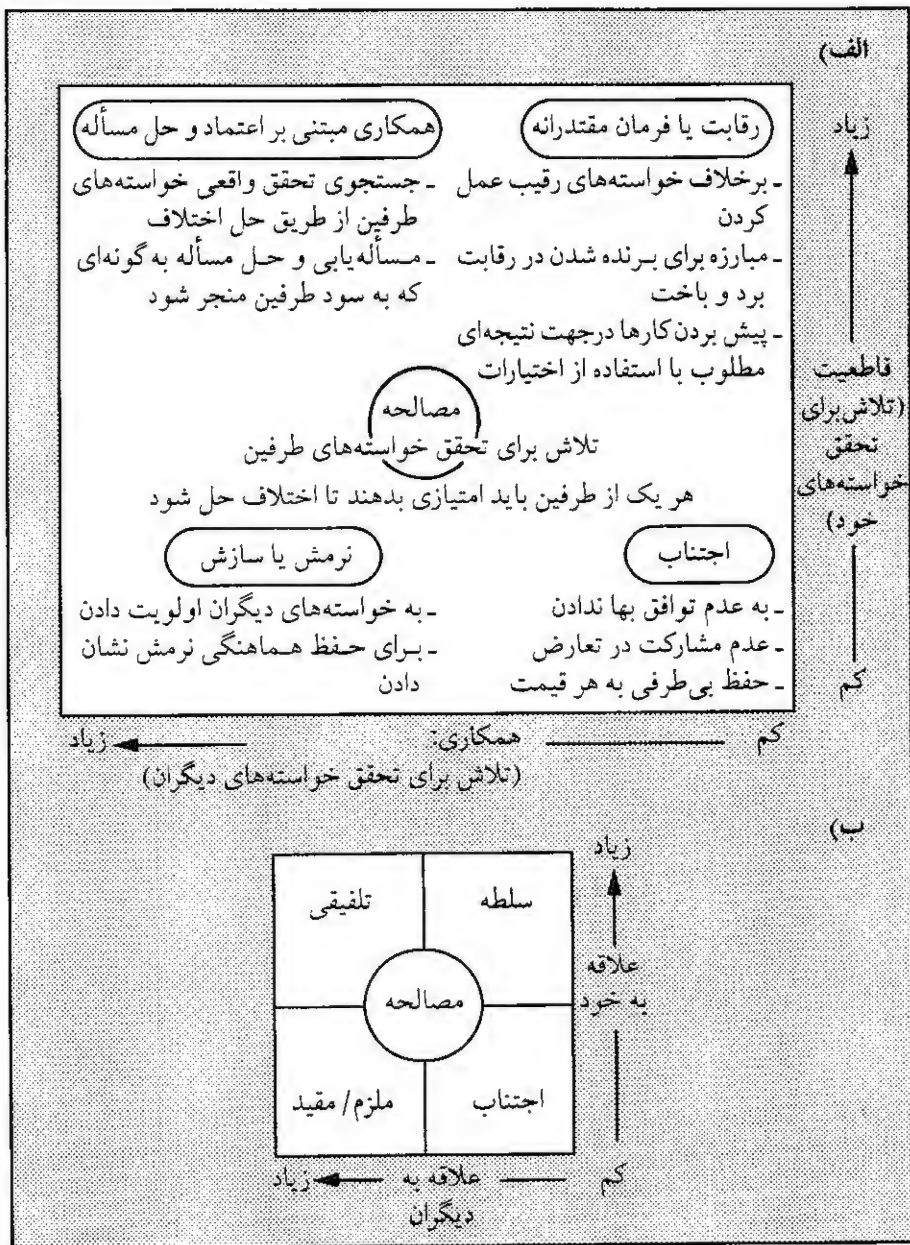 الف)
رقابت یا فرمان مقتدرانه
ـ برخلاف خواسته‌های رقیب عمل
کردن
ـ مبارزه برای برنده شدن در رقابت
برد و باخت
ـ پیش بردن کارها درجهت نتیجه‌ای
مطلوب با استفاده از اختیارات
همکاری مبتنی بر اعتماد و حل مسأله
ـ جستجوی تحقق واقعی خواسته‌های
طرفین از طریق حل اختلاف
ـ مسأله‌یابی و حل مسأله به گونه‌ای
که به سود طرفین منجر شود
مصالحه
تلاش برای تحقق خواسته‌های طرفین
هر یک از طرفین باید امتیازی بدهند تا اختلاف حل شود
اجتناب
ـ به عدم توافق بها ندادن
ـ عدم مشارکت در تعارض
ـ حفظ بی‌طرفی به هر قیمت
نرمش یا سازش
ـ به خواسته‌های دیگران اولویت دادن
ـ برای حفظ هماهنگی نرمش نشان
دادن
زیاد
قاطعیت
(تلاش‌برای
تحقق
خواسته‌های
خود)
کم
کم
همکاری:
(تلاش برای تحقق خواسته‌های دیگران)
زیاد
ب)
زیاد
علاقه
به خود
کم
سلطه
تلفیقی
مصالحه
اجتناب
ملزم/ مقید
علاقه به
دیگران
زیاد